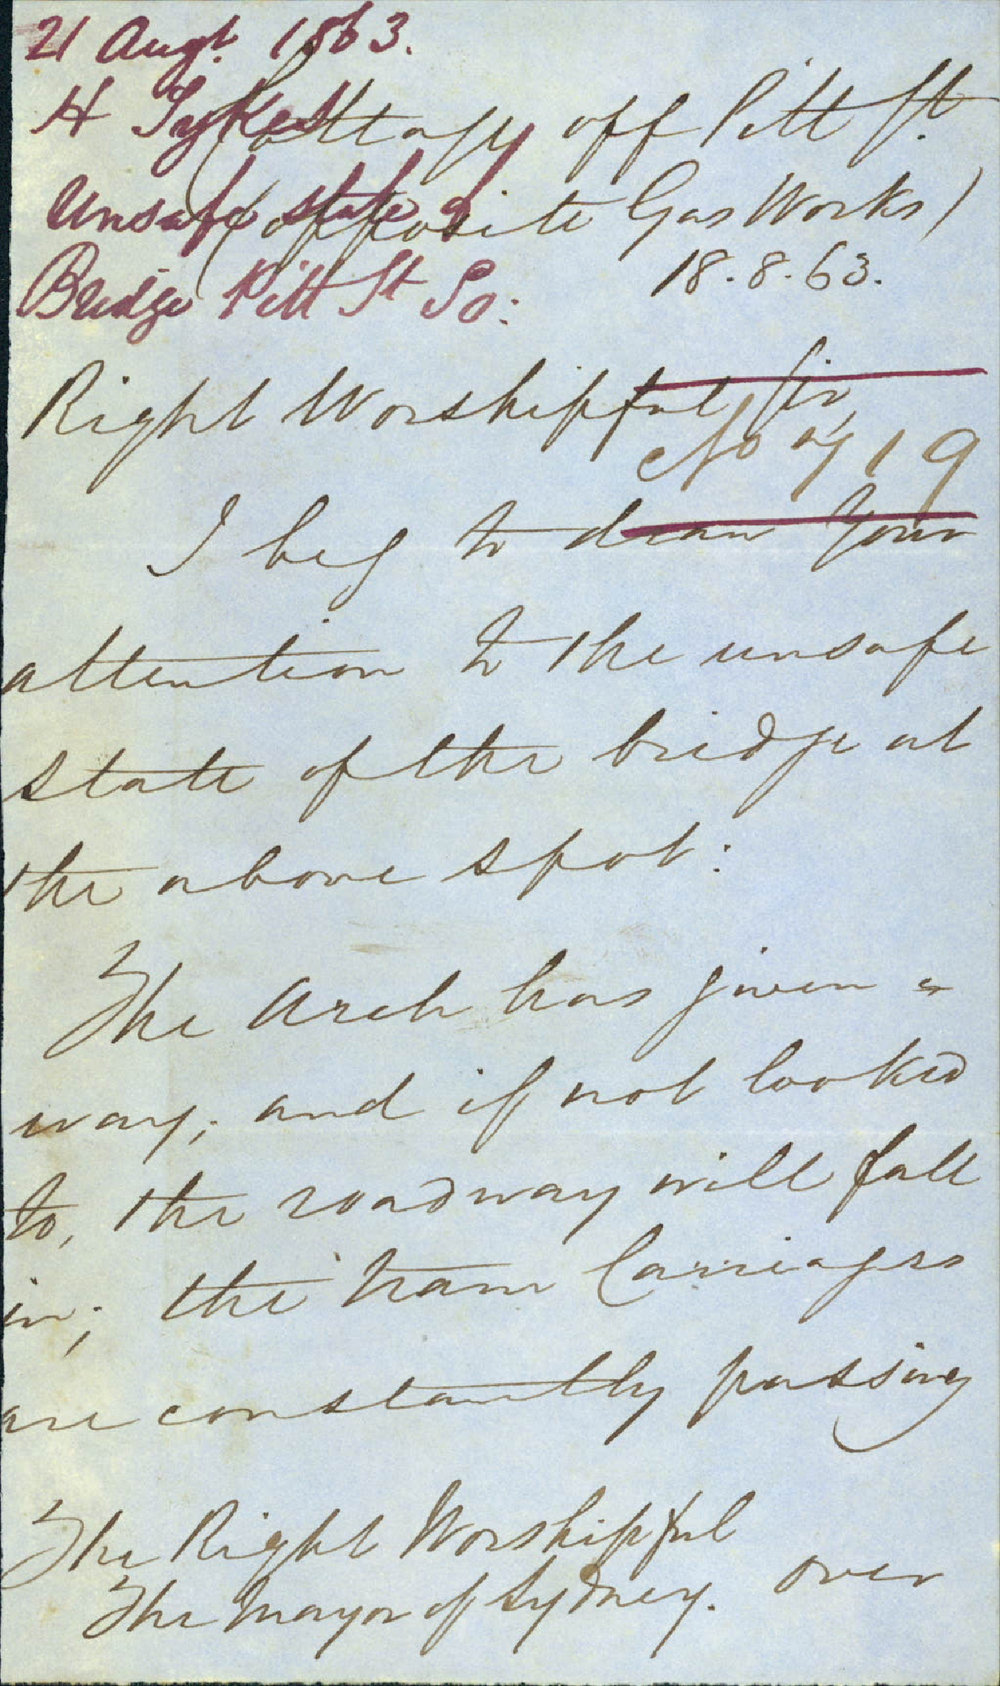 21 Augt. 1863.
H Sykes
Unsafe state of
Bridge Pitt St So:
Cottage off Pitt St.
(opposite Gas Works)
18.8.63.
Right Worshipful Sir,
No 719
I beg to draw your
attention to the unsafe
state of the bridge at
the above spot:
The Arch has given a
way; and if not looked
to, the roadway will fall
in; the tram Carriages
are constantly passing
The Right Worshipful
The Mayor of Sydney.
over